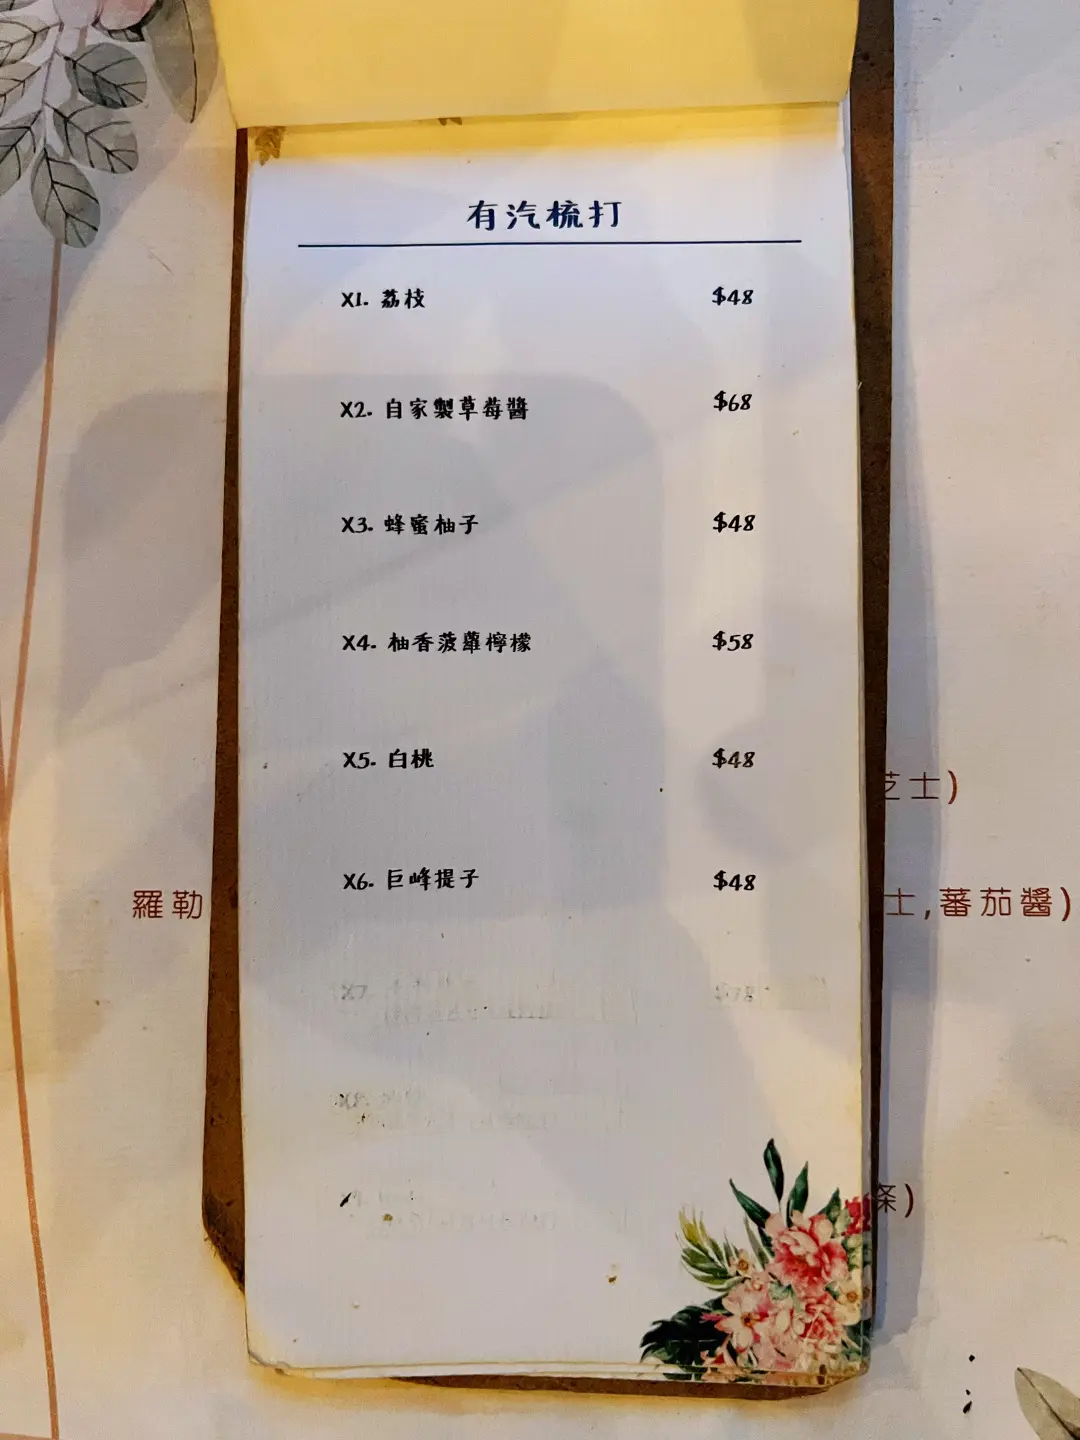 有汽梳打
X1. 荔枝 $48
X2. 自家製草莓醬 $68
X3. 蜂蜜柚子 $48
X4. 柚香菠蘿檸檬 $58
X5. 白桃 $48
芝士)
X6. 巨峰提子 $48
羅勒
士,蕃茄醬)
X7 $78
X8.
條)